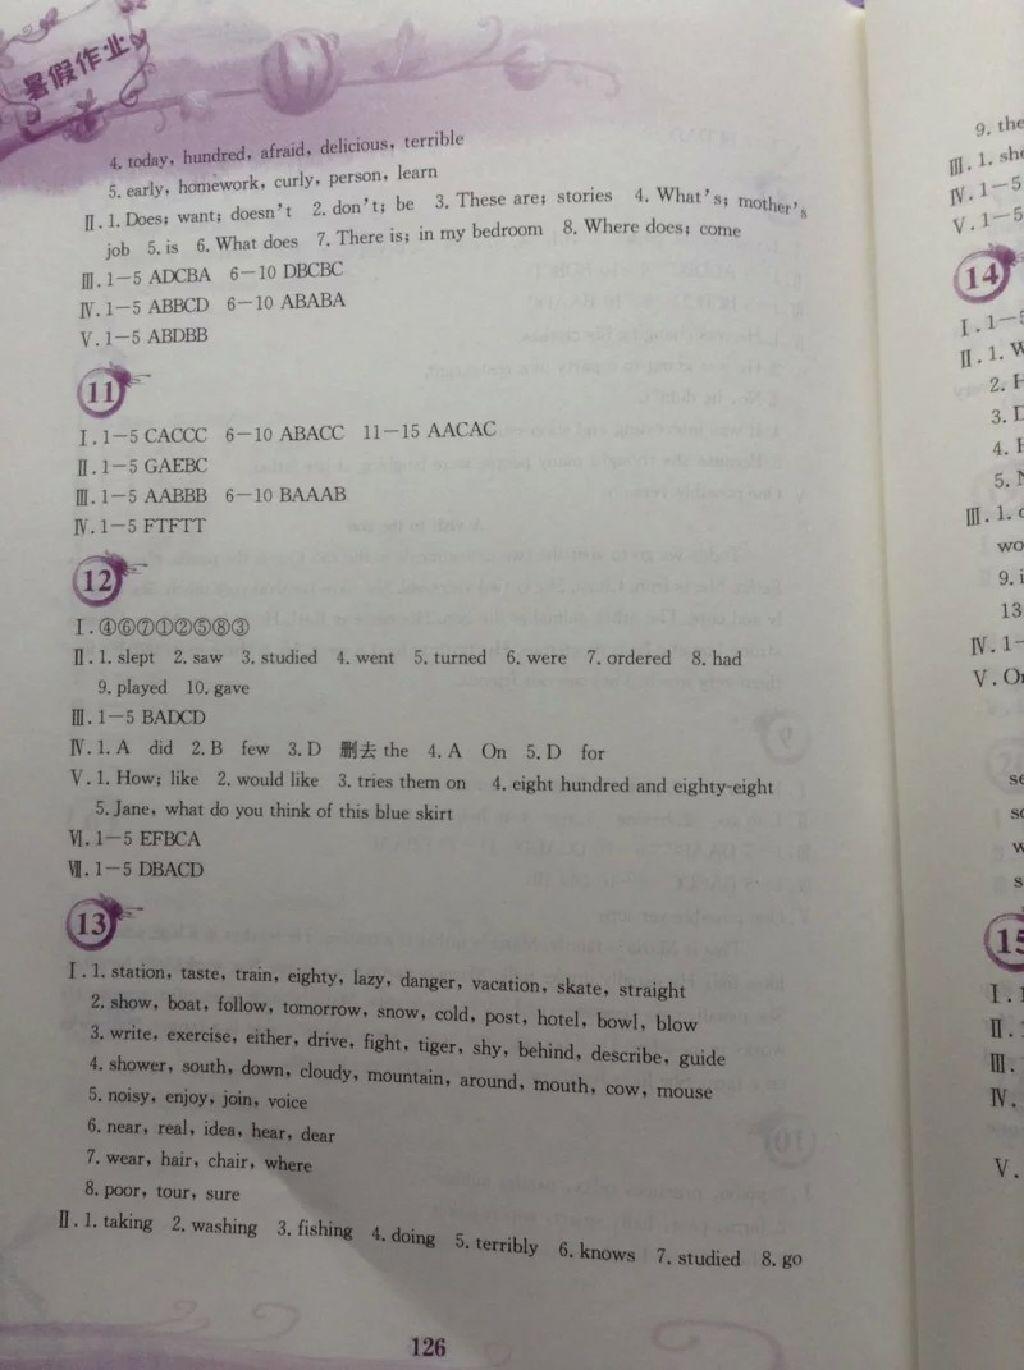 暑假作业
4. today, hundred, afraid, delicious, terrible
5. early, homework, curly, person, learn
Ⅱ. 1. Does; want; doesn't 2. don't; be 3. These are; stories 4. What's; mother's
job 5. is 6. What does 7. There is; in my bedroom 8. Where does; come
Ⅲ. 1—5 ADCBA 6—10 DBCBC
Ⅳ. 1—5 ABBCD 6—10 ABABA
Ⅴ. 1—5 ABDBB
11
Ⅰ. 1—5 CACCC 6—10 ABACC 11—15 AACAC
Ⅱ. 1—5 GAEBC
Ⅲ. 1—5 AABBB 6—10 BAAAB
Ⅳ. 1—5 FTFTT
12
Ⅰ. ④⑥⑦①②⑤⑧③
Ⅱ. 1. slept 2. saw 3. studied 4. went 5. turned 6. were 7. ordered 8. had
9. played 10. gave
Ⅲ. 1—5 BADCD
Ⅳ. 1. A did 2. B few 3. D 删去 the 4. A On 5. D for
Ⅴ. 1. How; like 2. would like 3. tries them on 4. eight hundred and eighty-eight
5. Jane, what do you think of this blue skirt
Ⅵ. 1—5 EFBCA
Ⅶ. 1—5 DBACD
13
Ⅰ. 1. station, taste, train, eighty, lazy, danger, vacation, skate, straight
2. show, boat, follow, tomorrow, snow, cold, post, hotel, bowl, blow
3. write, exercise, either, drive, fight, tiger, shy, behind, describe, guide
4. shower, south, down, cloudy, mountain, around, mouth, cow, mouse
5. noisy, enjoy, join, voice
6. near, real, idea, hear, dear
7. wear, hair, chair, where
8. poor, tour, sure
Ⅱ. 1. taking 2. washing 3. fishing 4. doing 5. terribly 6. knows 7. studied 8. go
126
9. the
Ⅲ. 1. she
Ⅳ. 1—5
Ⅴ. 1—5
14
Ⅰ. 1—5
Ⅱ. 1. W
2. H
3. D
4.
5.
Ⅲ. 1.
wo
9. i
13
Ⅳ. 1—
Ⅴ. On
se
so
w
s
15
Ⅰ. 1
Ⅱ.
Ⅲ.
Ⅳ.
Ⅴ.